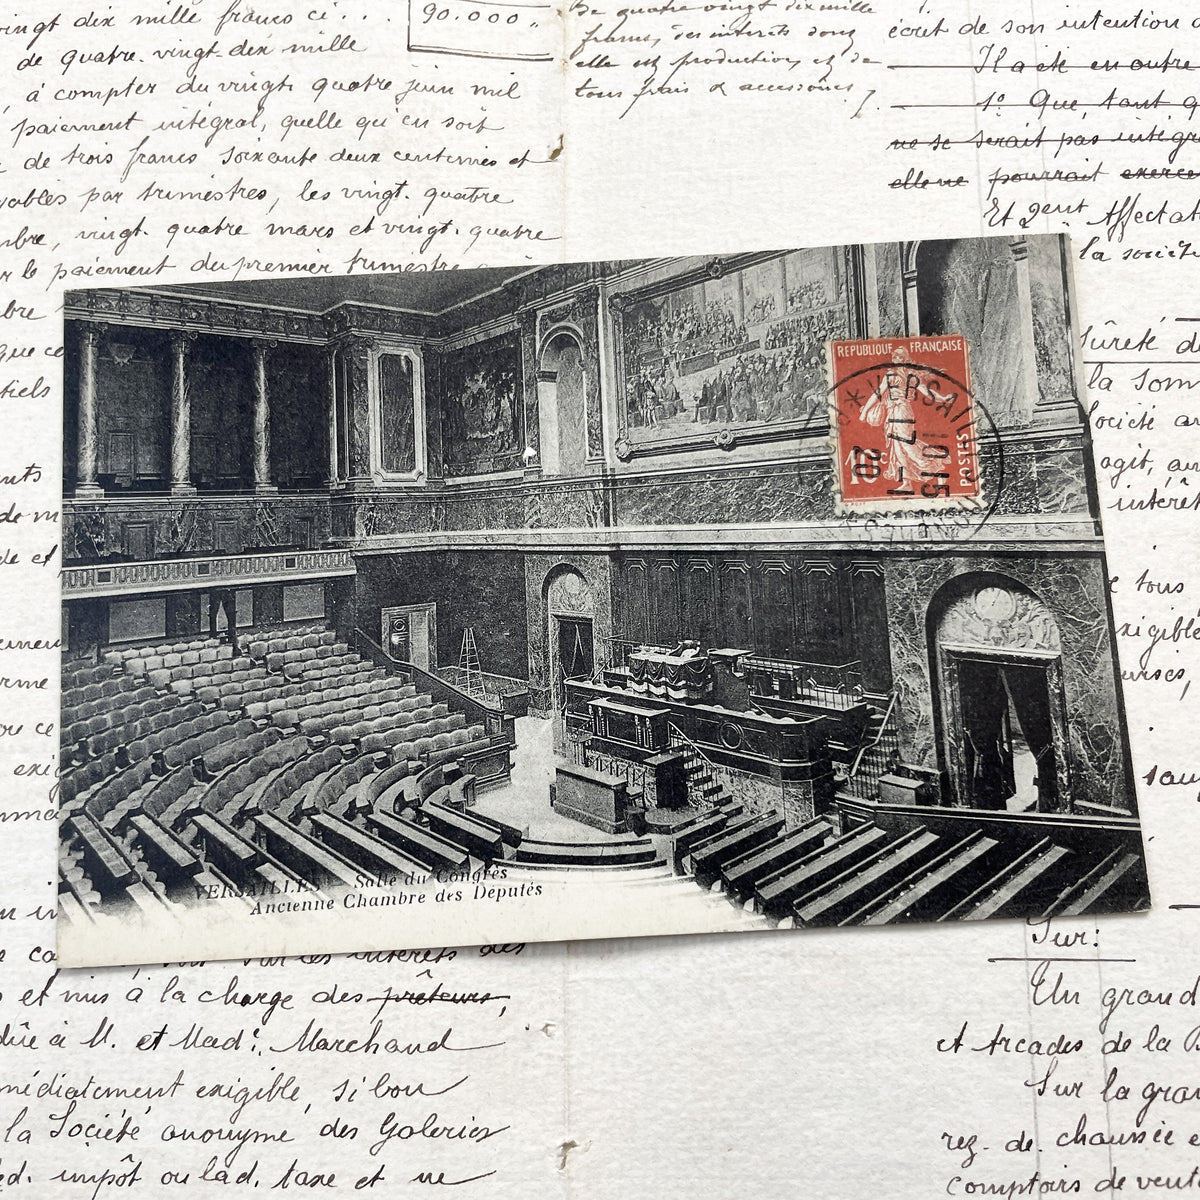 vingt dix mille francs ci . . .
90.000 „
de quatre. vingt-dix mille
à compter du vingt quatre juin mil
paiement intégral, quelle qu'en soit
de trois francs soixante deux centimes et
yables par trimestres, les vingt. quatre
mbre, vingt. quatre mars et vingt. quatre
r le paiement du premier trimestre
De quatre vingt dix mille
francs, des intérêts dont
elle est production, et de
tous frais & accessoires
écrit de son intention
Il a été en outre
1º Que, tant q
ne se serait pas intégr
elle ne pourrait exerce
Et
Affectat
la sociét
Sûreté d
la som
Société a
agit, au
intérêt
tous
exigible
REPUBLIQUE FRANÇAISE
10c
POSTES
VERSAIL
10 15
17 -1
20
VERSAILLES - Salle du Congrès
Ancienne Chambre des Députés
intérêts des
et mis à la charge des prêteurs,
dûe à M. et Made. Marchand
médiatement exigible, si bon
la Société anonyme des Galeries
éd. impôt ou lad. taxe et ne
Sur:
Un grand
et Arcades de la
Sur la gran
rez. de. chaussée e
comptoirs de vent